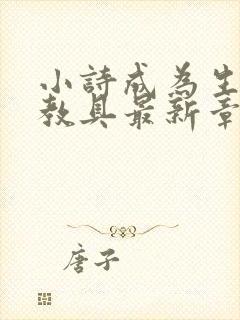 小詩成為生
教具最新章
唐子